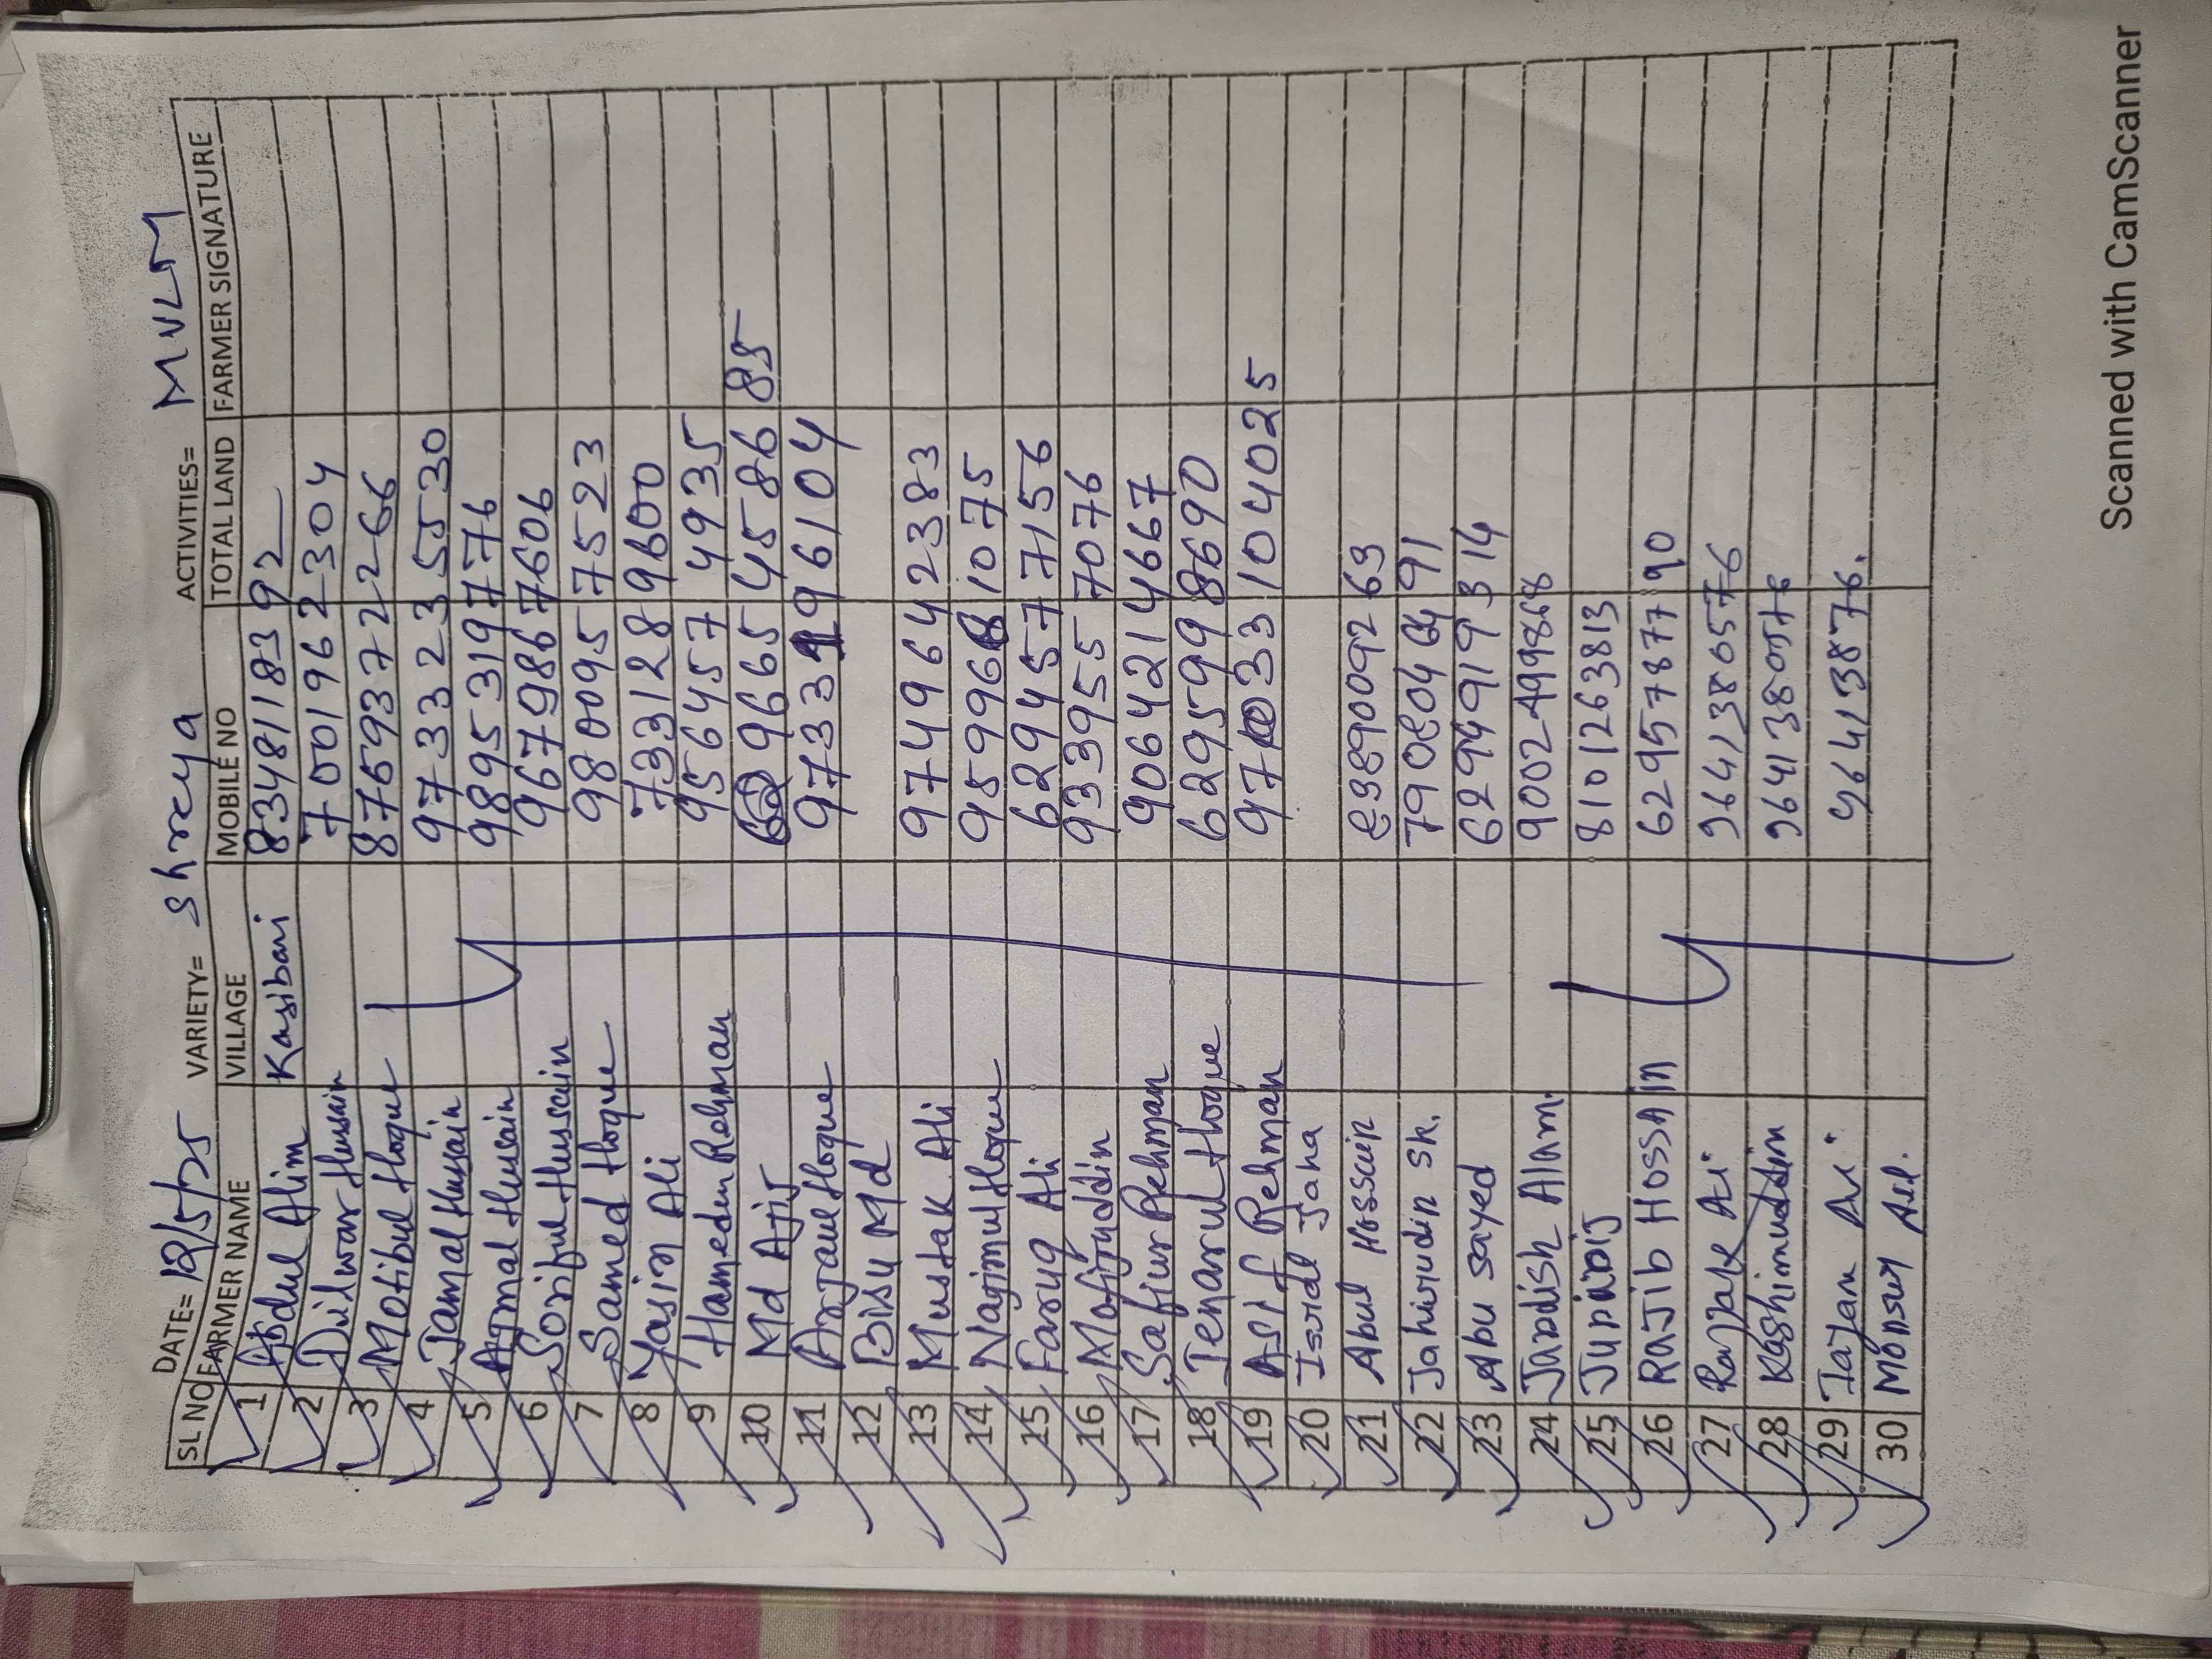 DATE= 18/5/25 VARIETY= Shreya ACTIVITIES= MVLM
SL NO FARMER NAME VILLAGE MOBILE NO TOTAL LAND FARMER SIGNATURE
1 Abdul Alim Kasibari 8348118392
2 Dilwar Hussain 7001962304
3 Motibul Hoque 8765937 2266
4 Jamal Hussain 9733235530
5 Ajmal Hussain 9895319776
6 Soriful Hussain 9679867606
7 Samed Hoque 9800957523
8 Yasin Ali 7331289600
9 Hamedur Rehman 9564574935
10 Md Ajij 9665458685
11 Anjaul Hoque 9733996104
12 Bisu Md
13 Mustak Ali 9749642383
14 Najimul Hoque 9599681075
15 Faruq Ali 6294577156
16 Mofijuddin 9339557076
17 Safiur Rehman 9064214667
18 Jenarul Hoque 6295998690
19 Asif Rehman 97033104025
20 Isral Jaha
21 Abul Hossain 8389009263
22 Jahirudin Sk. 7908046491
23 Abu sayed 6294919314
24 Jardish Alam. 9002499868
25 8101263813
26 RaJib HossAin 6295787790
27 Rajjak Ali 9641380576
28 Kashimuddin 9641380576
29 Tajam Ali 96413876.
30 Monsur Ali.
Scanned with CamScanner